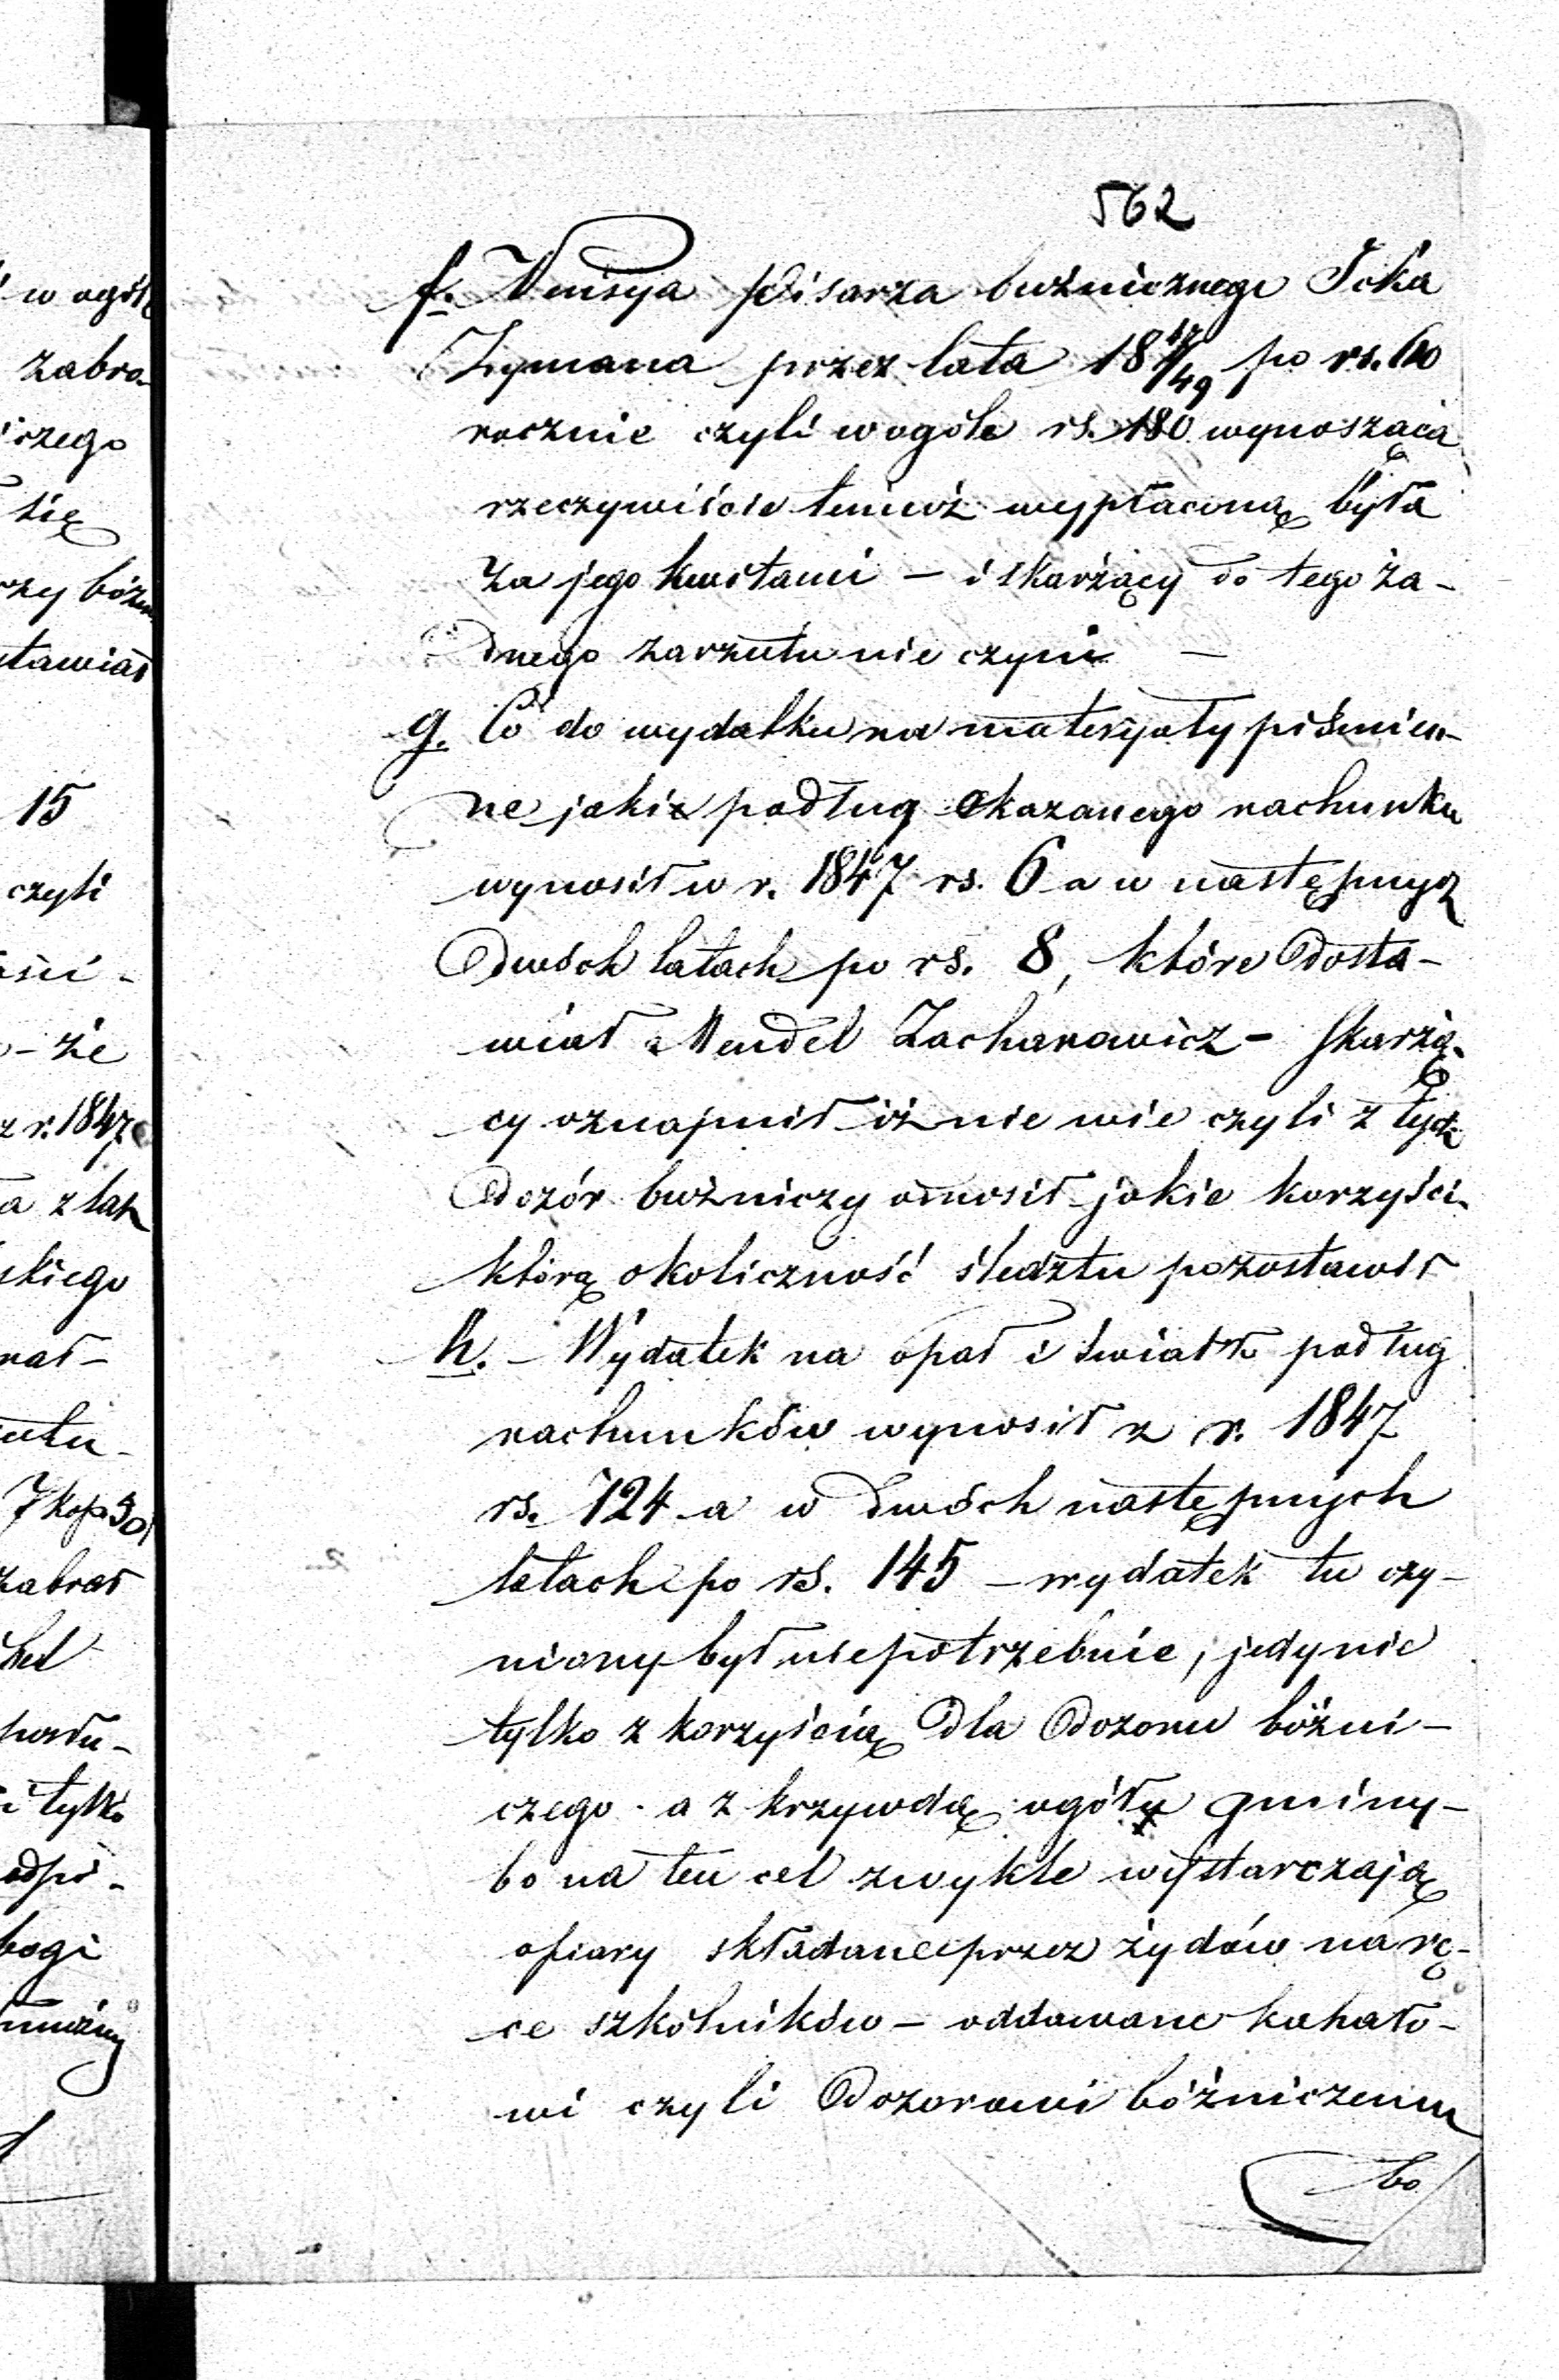 562
f. Pensya pisarza bużnicznego Icka
Zymana przez lata 1847/49 po rs. 60
rocznie czyli wogóle rs. 180 wynosząca
rzeczywiście temuż wypłaconą była
za jego kwitami – i skarżący do tego ża-
dnego zarzutu nie czyni –
g. Co do wydatku na materyały piśmien-
ne jaki podług okazanego rachunku
wynosił w r. 1847 rs. 6 a w następnych
dwóch latach po rs. 8, które dosta-
wiał Mendel Zacharowicz – skarżą-
cy oznajmił iż nie wie czyli z tych
dozór bużniczy odnosił jakie korzyści
którą okoliczność śledztu pozostawił
h. – Wydatek na opał i światło podług
rachunków wynosił z r. 1847
rs. 124 a w dwóch następnych
latach po rs. 145 – wydatek tu czy-
niony był niepotrzebnie, jedynie
tylko z korzyścią dla dozoru bóżni-
czego a z krzywdą ogółu gminy –
bo na ten cel zwykle wystarczają
ofiary składane przez żydów na rę-
ce szkolników – oddawane kahało-
wi czyli Dozorowi bóżniczemu
bo
w ogól
zabra-
czego
się
rzy bóżn
stawiał
15
czyli
- że
z r. 1847
a z lat
skiego
7 kop 30
zabrał
i tylko